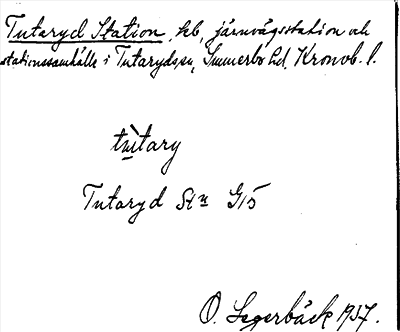 Tutaryd Station, kb, järnvägsstation och
stationssamhälle i Tutaryds sn, Sunnerbo hd, Kronob. l.
tùtary
Tutaryd Stn G15
O. Segerbäck 1937.